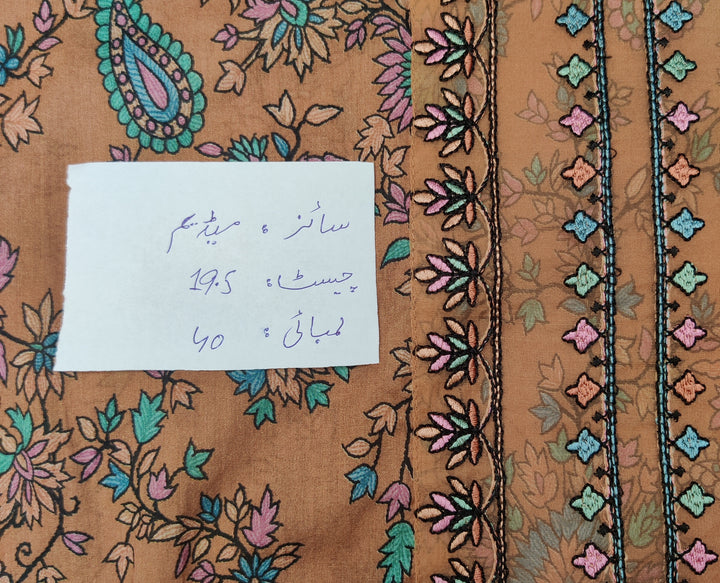 سائز : میڈیم
چیسٹ : 19.5
لمبائی : 40